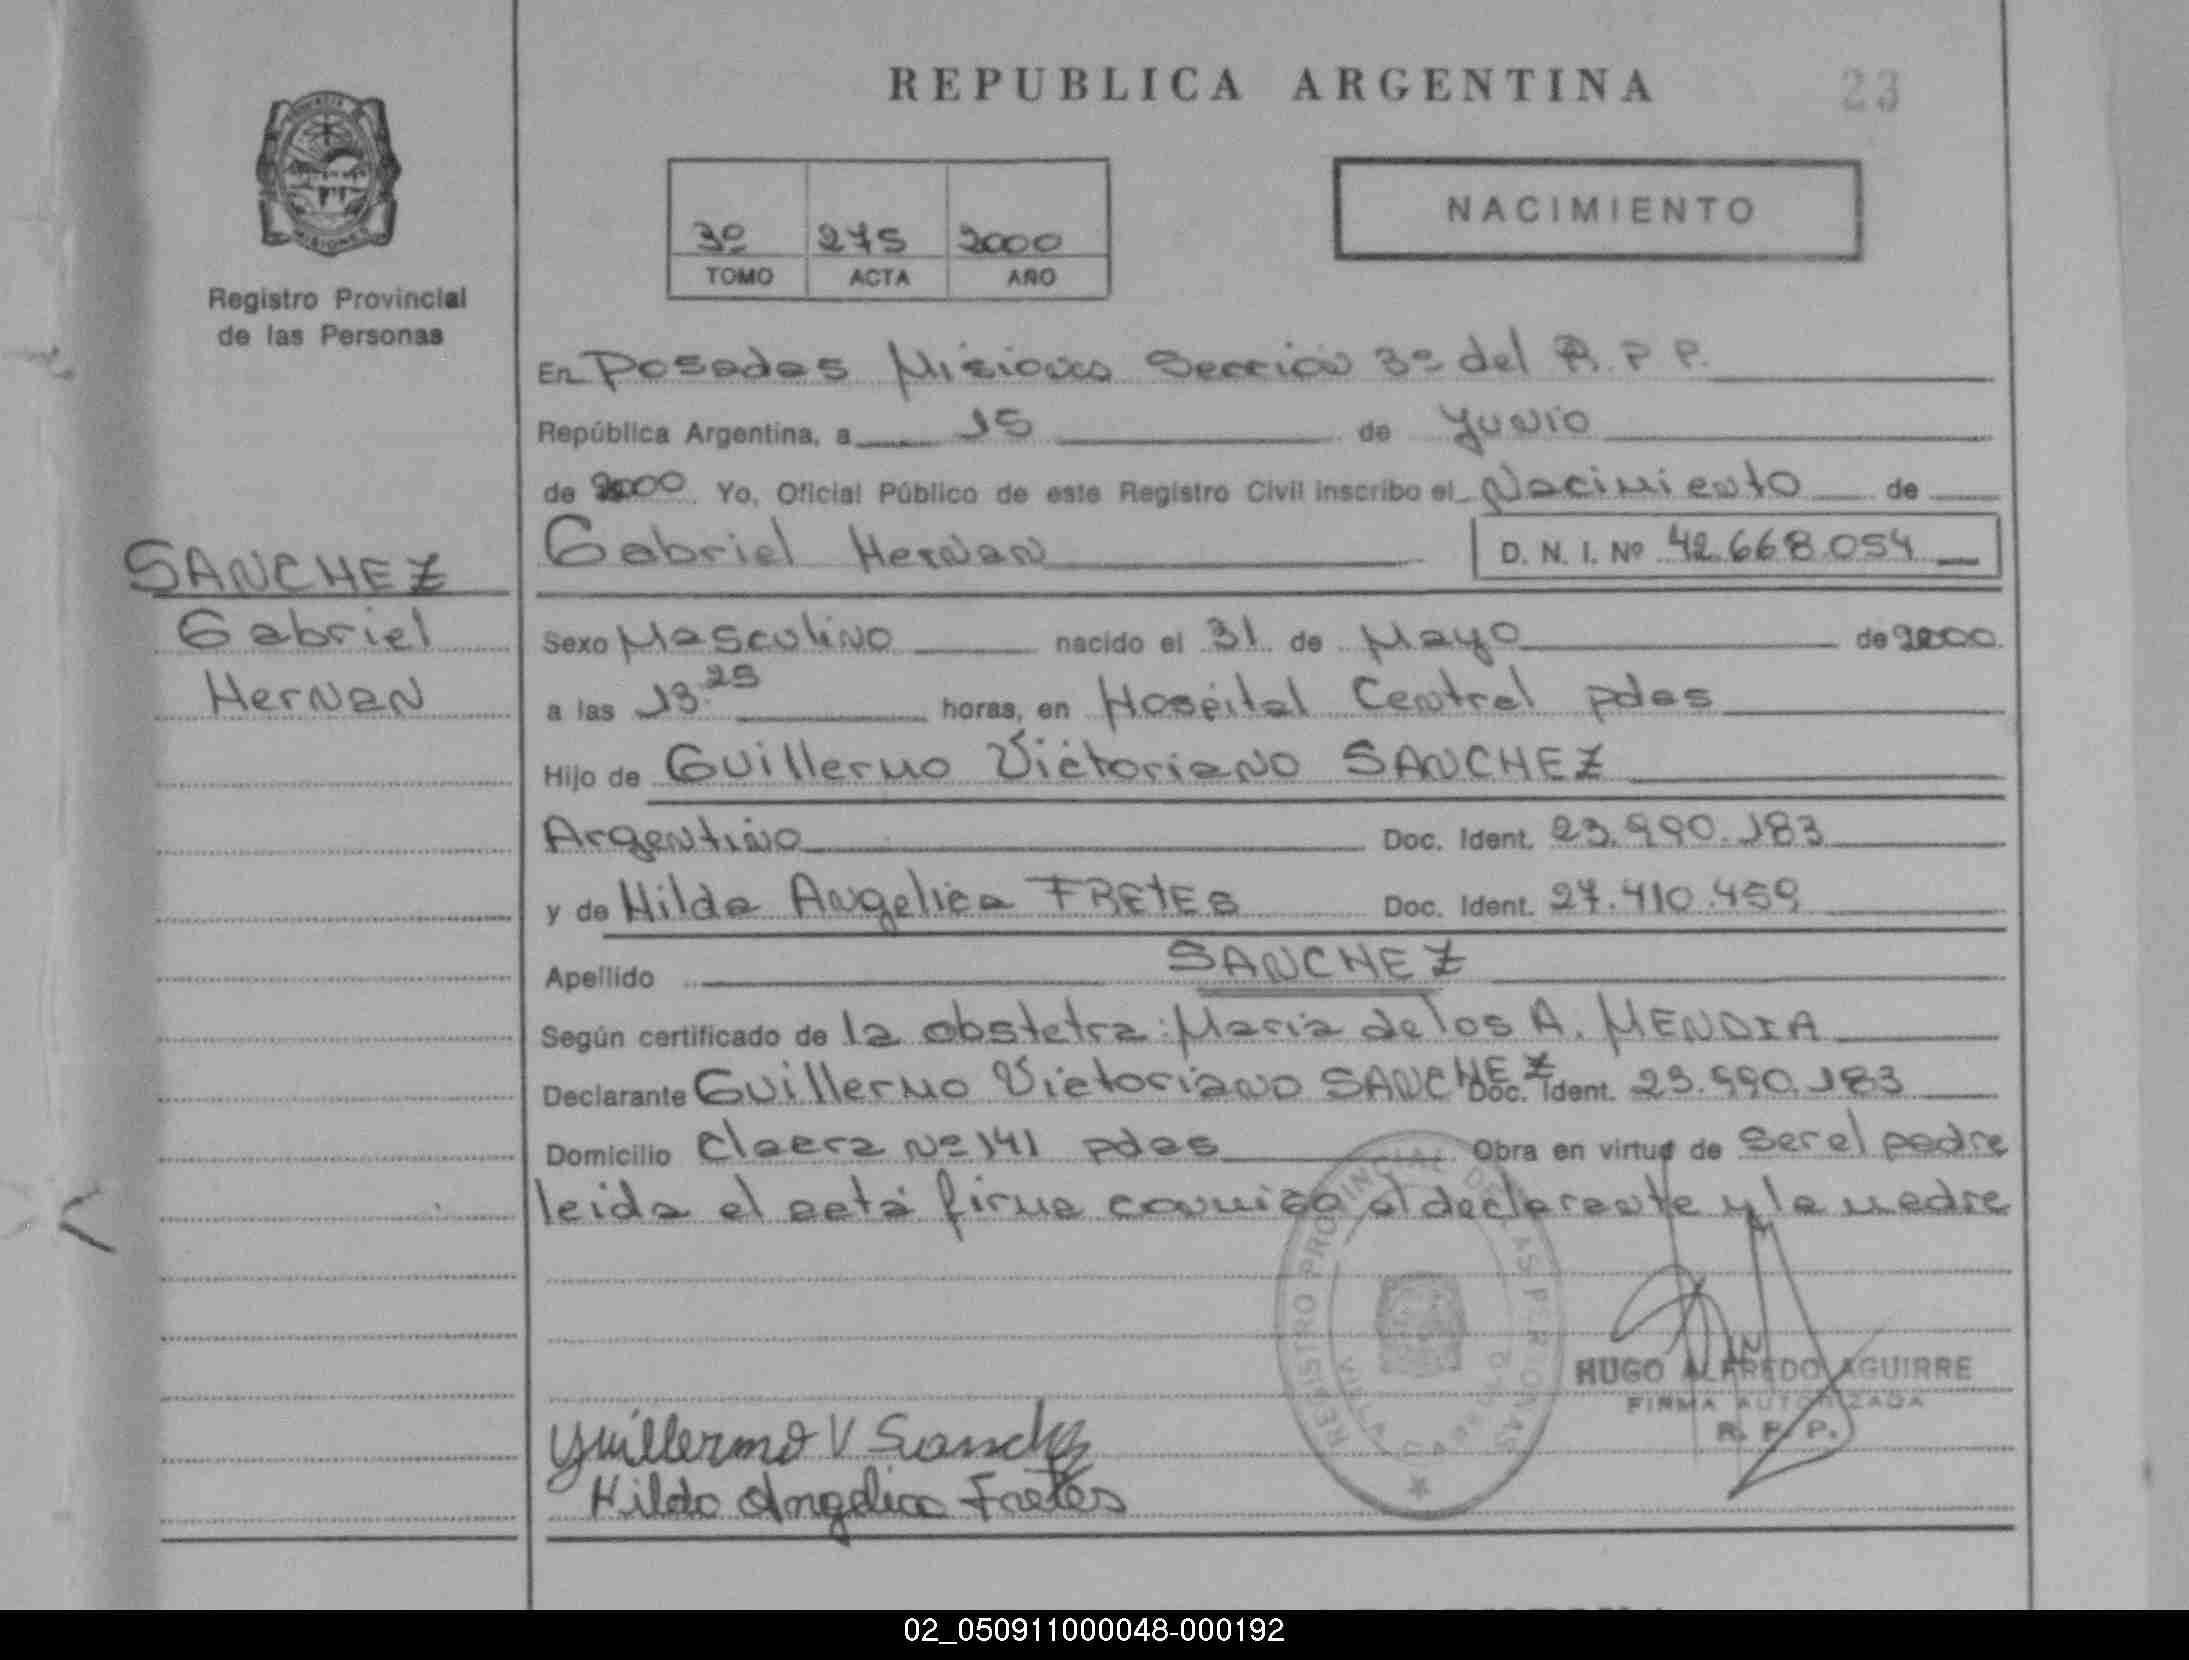 REPUBLICA ARGENTINA
23
Registro Provincial
de las Personas
3º 275 2000
TOMO ACTA AÑO
NACIMIENTO
En Posadas Misiones Sección 3º del R.P.P.
República Argentina, a 15 de Junio
de 2000 Yo, Oficial Público de este Registro Civil inscribo el Nacimiento de
Gabriel Hernan D. N. I. Nº 42.668.054
SANCHEZ
Gabriel
Hernan
Sexo Masculino nacido el 31 de Mayo de 2000
a las 13.25 horas, en Hospital Central pdas
Hijo de Guillermo Victoriano SANCHEZ
Argentino Doc. Ident. 23.990.183
y de Hilda Angelica FRETES Doc. Ident. 27.410.459
Apellido SANCHEZ
Según certificado de la obstetra: Maria de los A. MENDIA
Declarante Guillermo Victoriano SANCHEZ Doc. Ident. 23.990.183
Domicilio Claera Nº 141 pdas Obra en virtud de ser el padre
leida el acta firma conmigo el declarante y la madre
REGISTRO PROVINCIAL DE LAS PERSONAS
HUGO ALFREDO AGUIRRE
FIRMA AUTORIZADA
R. P. P.
Guillermo V Sanchez
Hilda Angelica Fretes
02_050911000048-000192